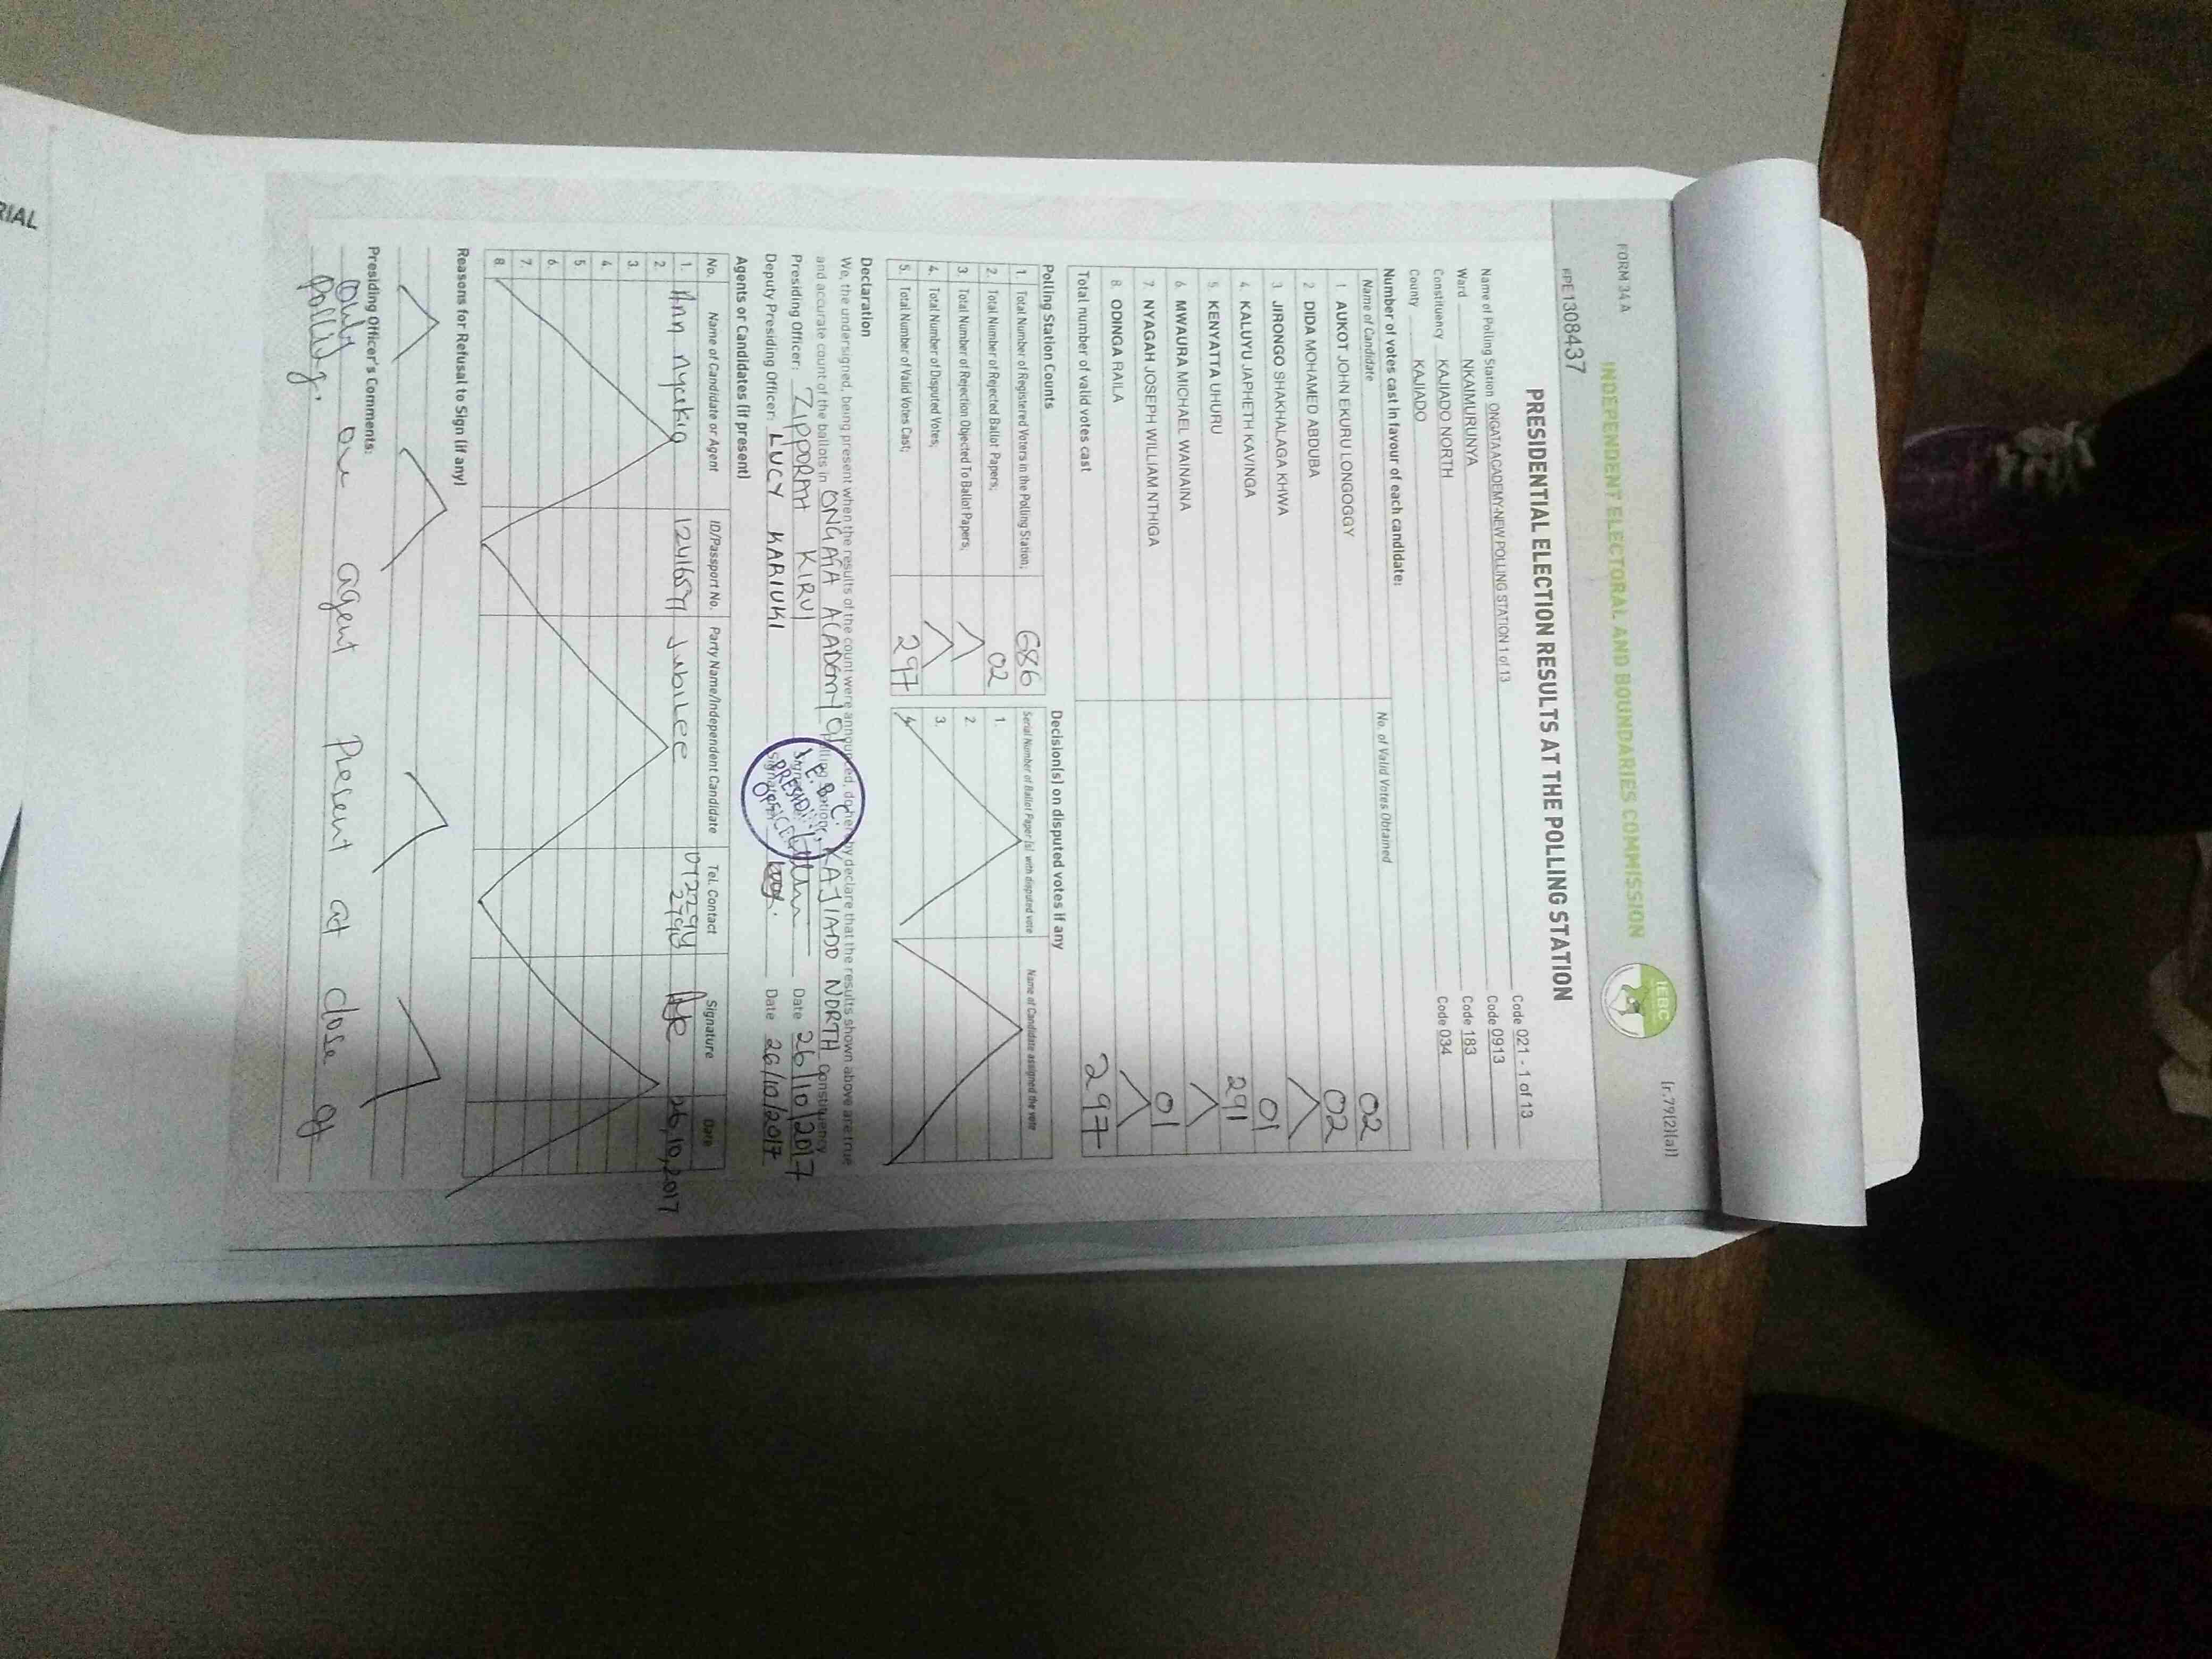 FORM 34 A
(r.79(2)(a))
INDEPENDENT ELECTORAL AND BOUNDARIES COMMISSION
IEBC
PRE1308437
PRESIDENTIAL ELECTION RESULTS AT THE POLLING STATION
Name of Polling Station ONGATA ACADEMY-NEW POLLING STATION 1 of 13 Code 021 - 1 of 13
Ward NKAIMURUNYA Code 0913
Constituency KAJIADO NORTH Code 183
County KAJIADO Code 034
Number of votes cast in favour of each candidate:
Name of Candidate No. of Valid Votes Obtained
1 AUKOT JOHN EKURU LONGOGGY 02
2 DIDA MOHAMED ABDUBA 02
3 JIRONGO SHAKHALAGA KHWA
4 KALUYU JAPHETH KAVINGA 01
5 KENYATTA UHURU 291
6 MWAURA MICHAEL WAINAINA
7 NYAGAH JOSEPH WILLIAM NTHIGA 01
8 ODINGA RAILA
Total number of valid votes cast 297
Polling Station Counts
1. Total Number of Registered Voters in the Polling Station; 686
2. Total Number of Rejected Ballot Papers; 02
3. Total Number of Rejection Objected To Ballot Papers;
4. Total Number of Disputed Votes;
5. Total Number of Valid Votes Cast; 297
Decision(s) on disputed votes if any
Serial Number of Ballot Paper (s) with disputed vote Name of Candidate assigned the vote
1.
2.
3.
4.
Declaration
We, the undersigned, being present when the results of the count were announced, do hereby declare that the results shown above are true
and accurate count of the ballots in ONGATA ACADEMY 01 Polling Station, KAJIADO NORTH Constituency
Presiding Officer: ZIPPORAH KIRUI Signature Date 26/10/2017
Deputy Presiding Officer: LUCY KARIUKI Signature Date 26/10/2017
I.E.B.C.
PRESIDING
OFFICER
Agents or Candidates (if present)
No. Name of Candidate or Agent ID/Passport No. Party Name/Independent Candidate Tel. Contact Signature Date
1. Ann Jubilee 26,10,2017
2.
3.
4.
5.
6.
7.
8.
Reasons for Refusal to Sign (if any)
Presiding Officer's Comments:
only on agent Present at close of
polling.
RIAL